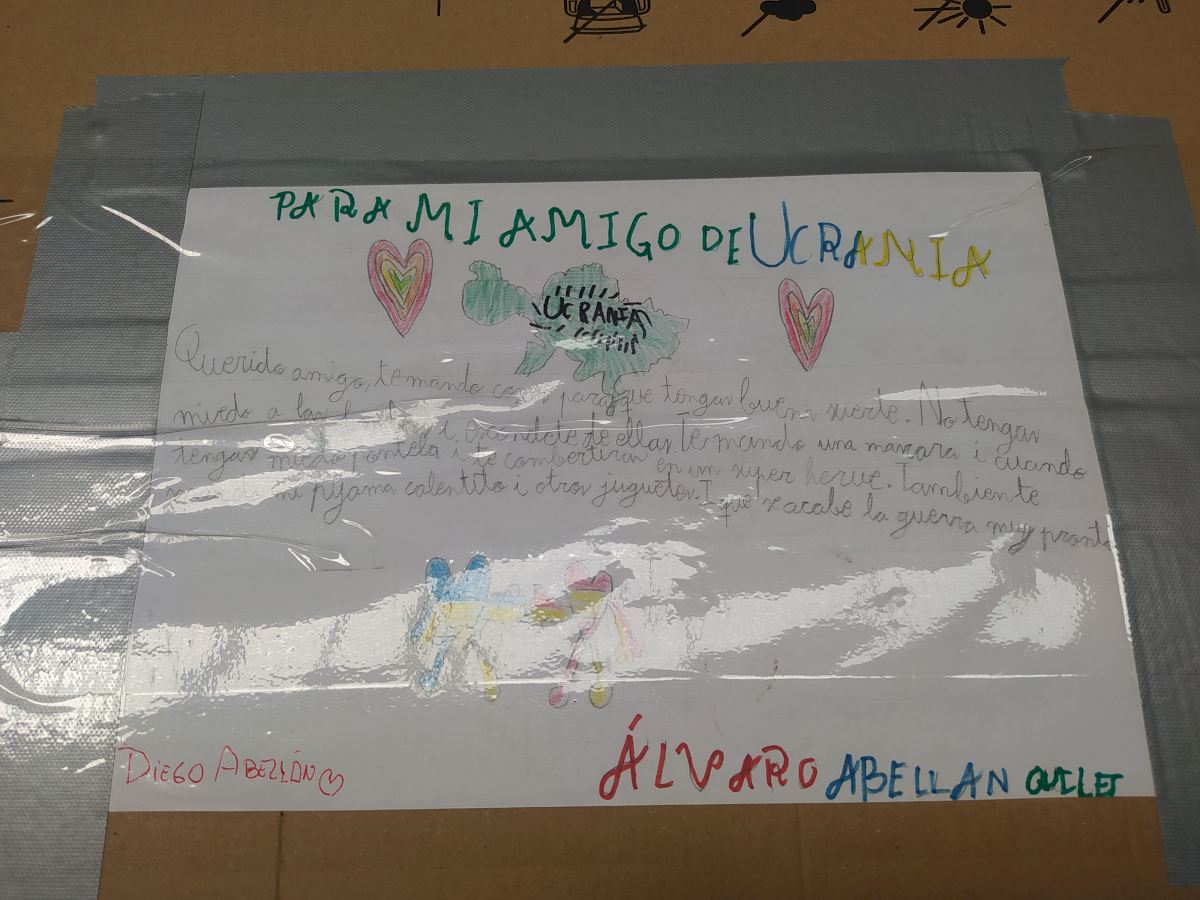 PARA MI AMIGO DE UCRANIA
UCRANIA
Querido amigo, te mando para que tengas buena suerte. No tengas
miedo a las i escondete de ellas. Te mando una mascara i cuando
tengas miedo pontela i te combertiras en un super heroe. Tambien te
mi pijama calentito i otros juguetes. I que se acabe la guerra muy pronto
DIEGO ABELLÁN
ÁLVARO ABELLAN QUILET